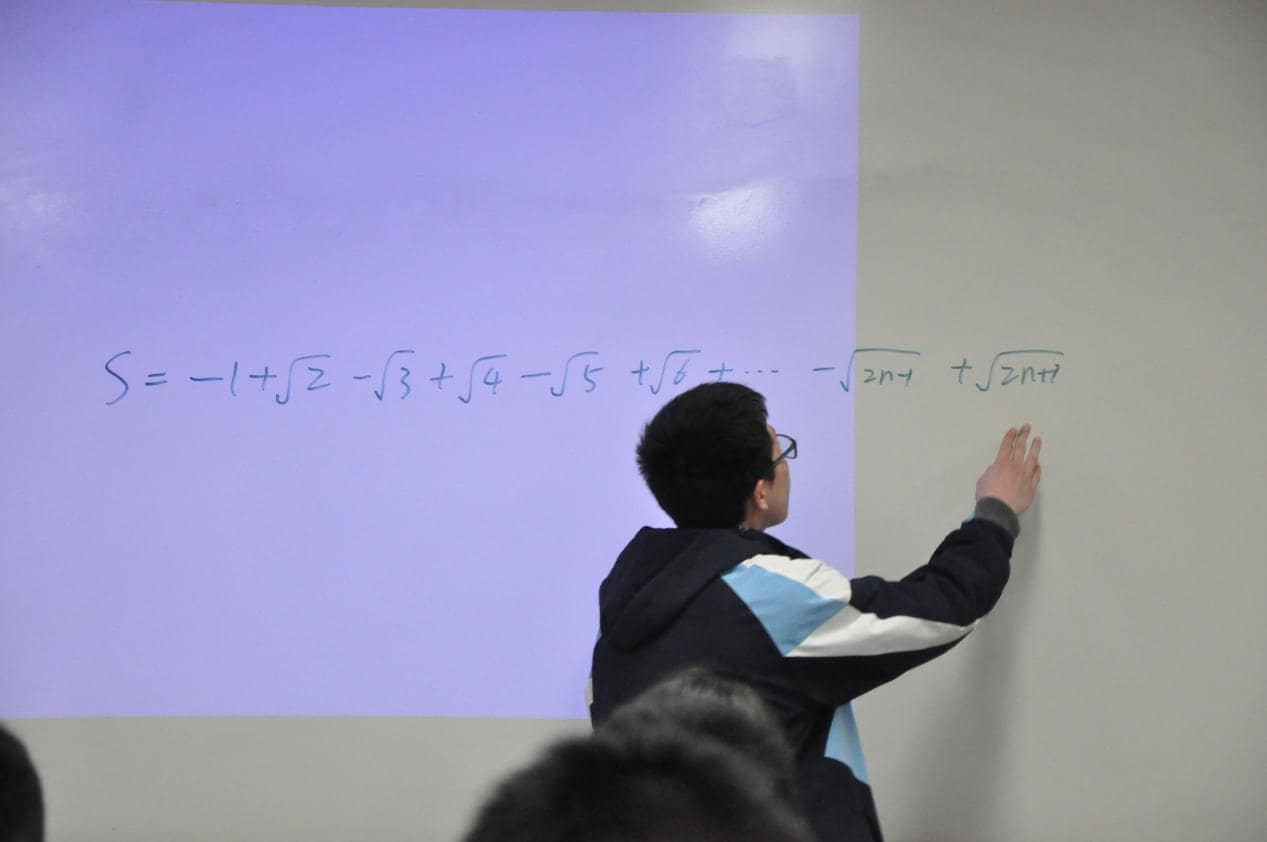 S = -1+√2 -√3 +√4 -√5 +√6 +··· -√2n-1 +√2n+1